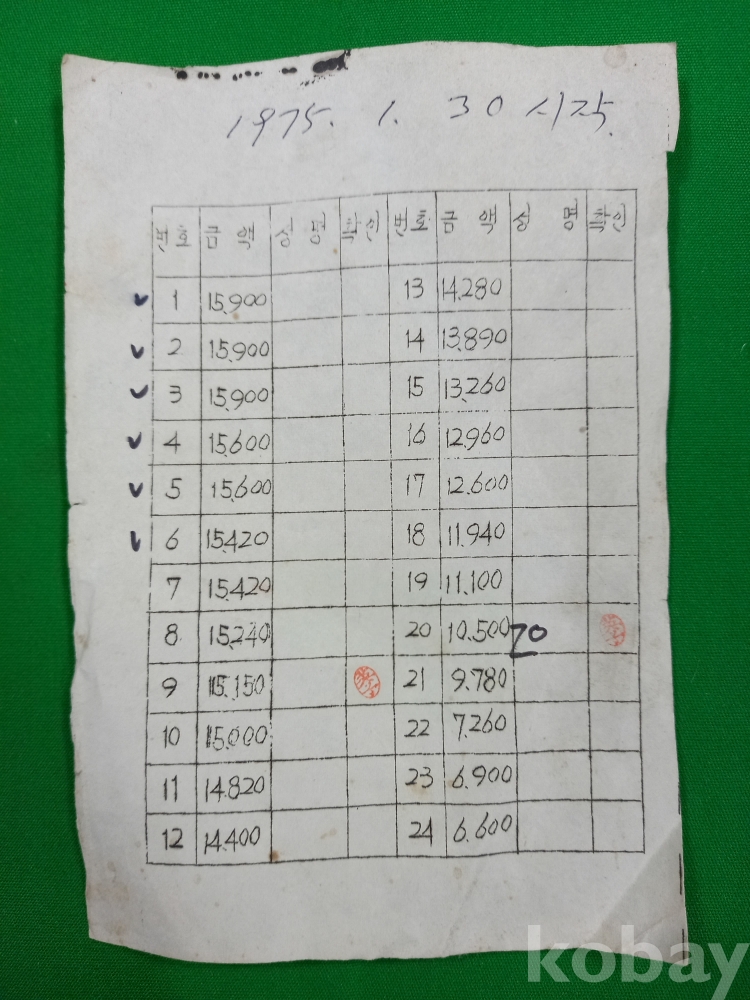 1975. 1. 30 시작.
번호 금액 성명 확인 번호 금액 성명 확인
1 15,900 13 14,280
2 15,900 14 13,890
3 15,900 15 13,260
4 15,600 16 12,960
5 15,600 17 12,600
6 15,420 18 11,940
7 15,420 19 11,100
8 15,240 20 10,500 20
9 15,150 21 9,780
10 15,000 22 7,260
11 14,820 23 6,900
12 14,400 24 6,600
kobay